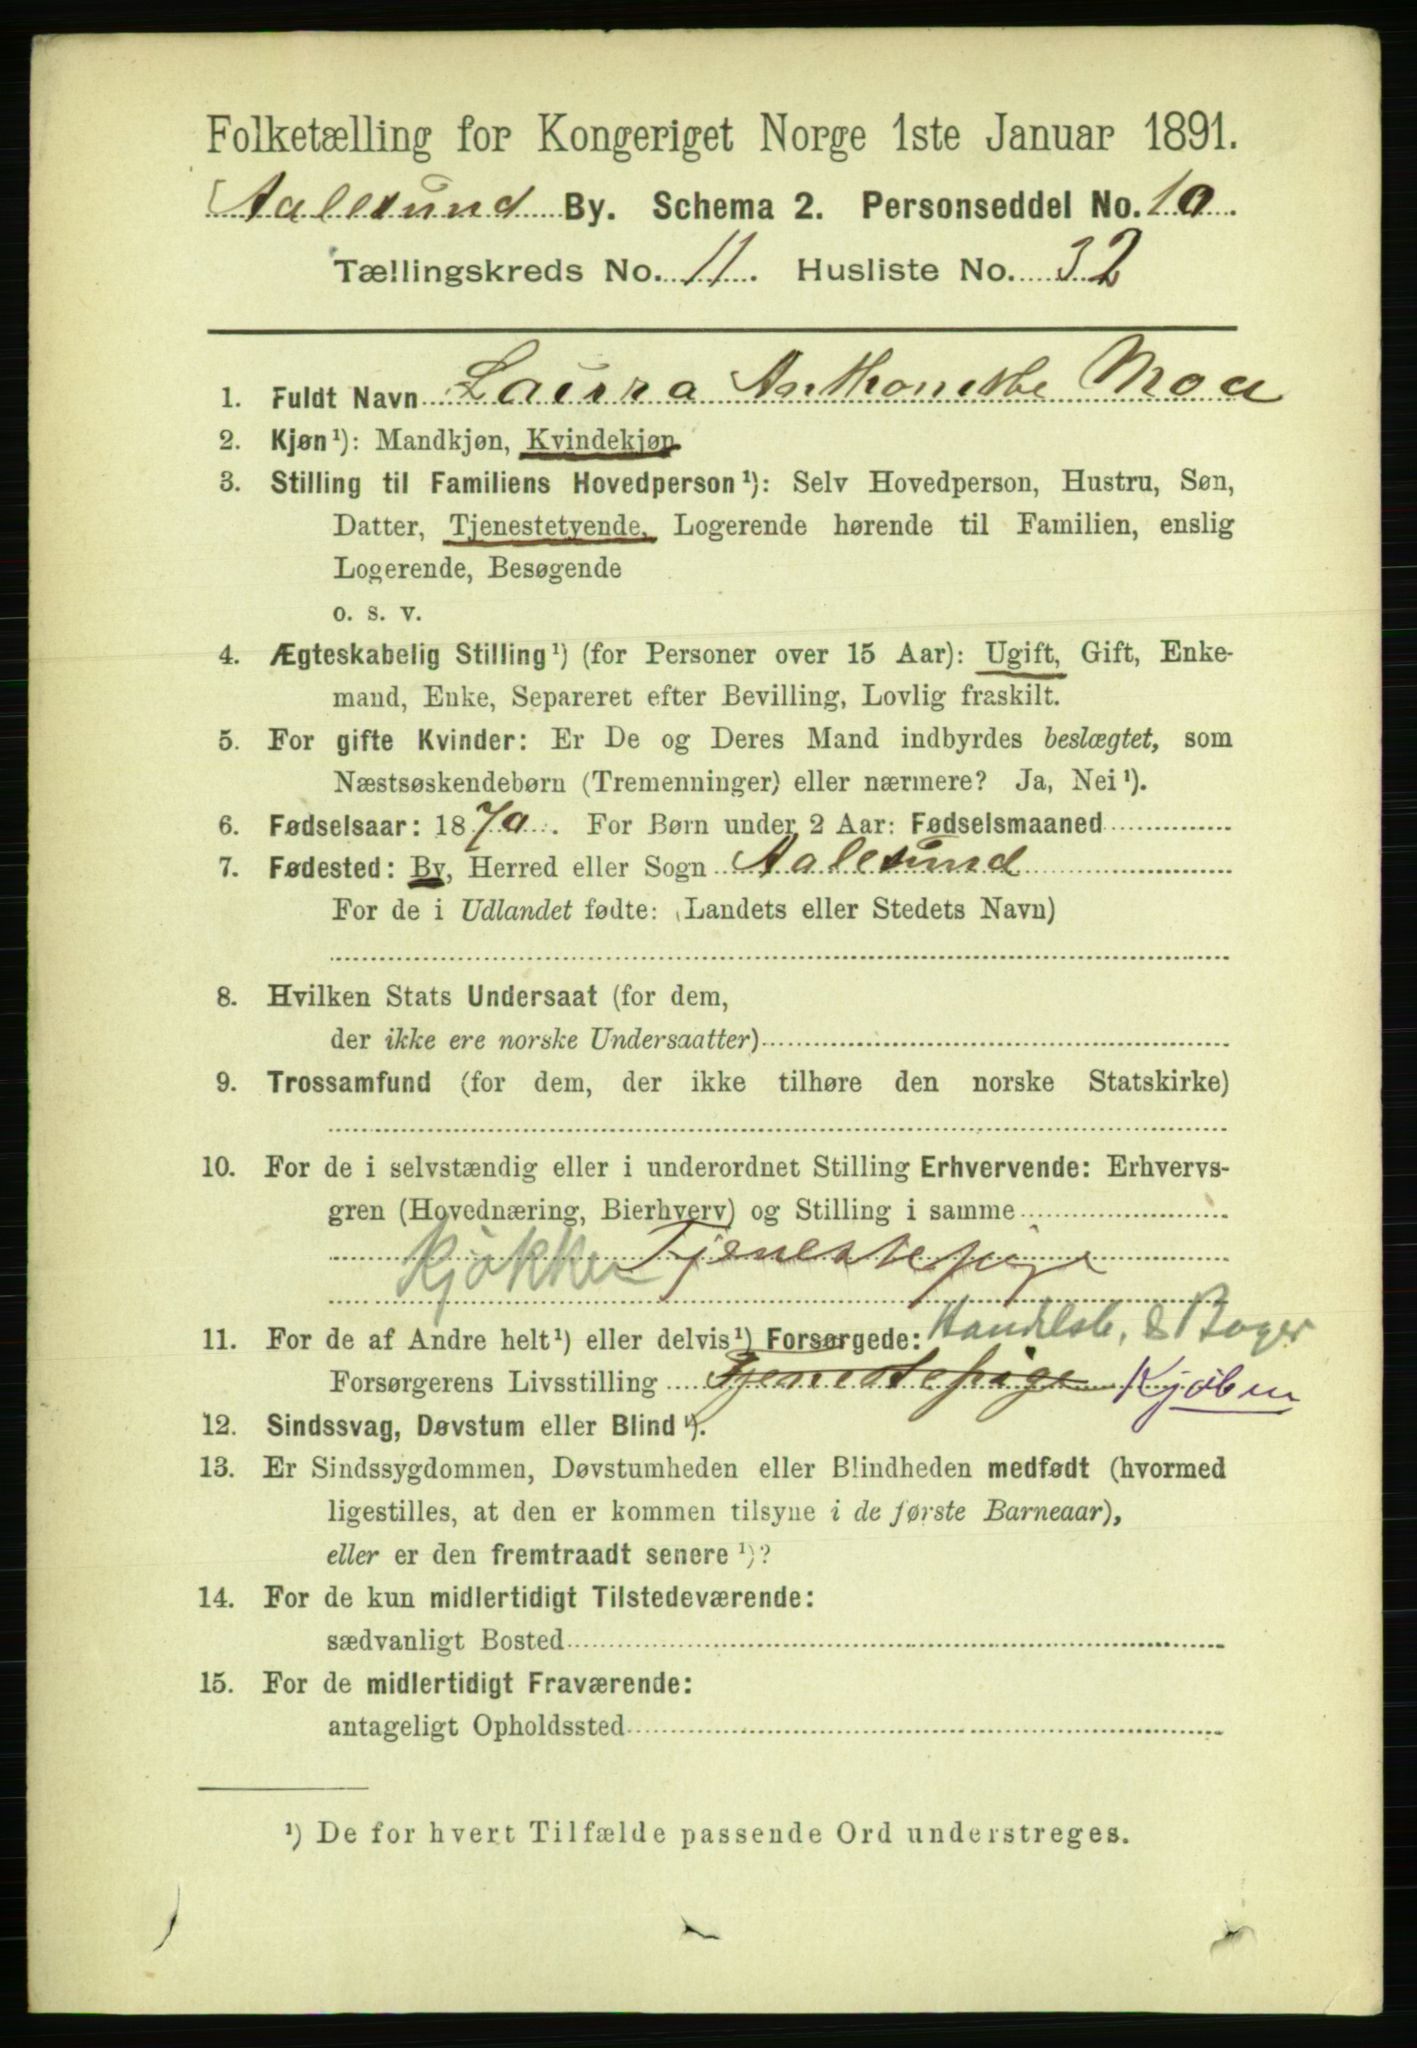 Folketælling for Kongeriget Norge 1ste Januar 1891.
Aalesund By. Schema 2. Personseddel No. 10.
Tællingskreds No. 11. Husliste No. 32
1. Fuldt Navn Laura Anthonette Moa
2. Kjøn¹): Mandkjøn, Kvindekjøn
3. Stilling til Familiens Hovedperson¹): Selv Hovedperson, Hustru, Søn,
Datter, Tjenestetyende, Logerende hørende til Familien, enslig
Logerende, Besøgende
o. s. v.
4. Ægteskabelig Stilling¹) (for Personer over 15 Aar): Ugift, Gift, Enke-
mand, Enke, Separeret efter Bevilling, Lovlig fraskilt.
5. For gifte Kvinder: Er De og Deres Mand indbyrdes beslægtet, som
Næstsøskendebørn (Tremenninger) eller nærmere? Ja, Nei¹).
6. Fødselsaar: 1870. For Børn under 2 Aar: Fødselsmaaned
7. Fødested: By, Herred eller Sogn Aalesund
For de i Udlandet fødte: (Landets eller Stedets Navn)
8. Hvilken Stats Undersaat (for dem,
der ikke ere norske Undersaatter)
9. Trossamfund (for dem, der ikke tilhøre den norske Statskirke)
10. For de i selvstændig eller i underordnet Stilling Erhvervende: Erhvervs-
gren (Hovednæring, Bierhverv) og Stilling i samme
Kjøkken Tjenestepige
11. For de af Andre helt¹) eller delvis¹) Forsørgede: Handelsb. & Bager
Forsørgerens Livsstilling Tjenestepige Kjøben
12. Sindssvag, Døvstum eller Blind¹).
13. Er Sindssygdommen, Døvstumheden eller Blindheden medfødt (hvormed
ligestilles, at den er kommen tilsyne i de første Barneaar),
eller er den fremtraadt senere¹)?
14. For de kun midlertidigt Tilstedeværende:
sædvanligt Bosted
15. For de midlertidigt Fraværende:
antageligt Opholdssted
¹) De for hvert Tilfælde passende Ord understreges.